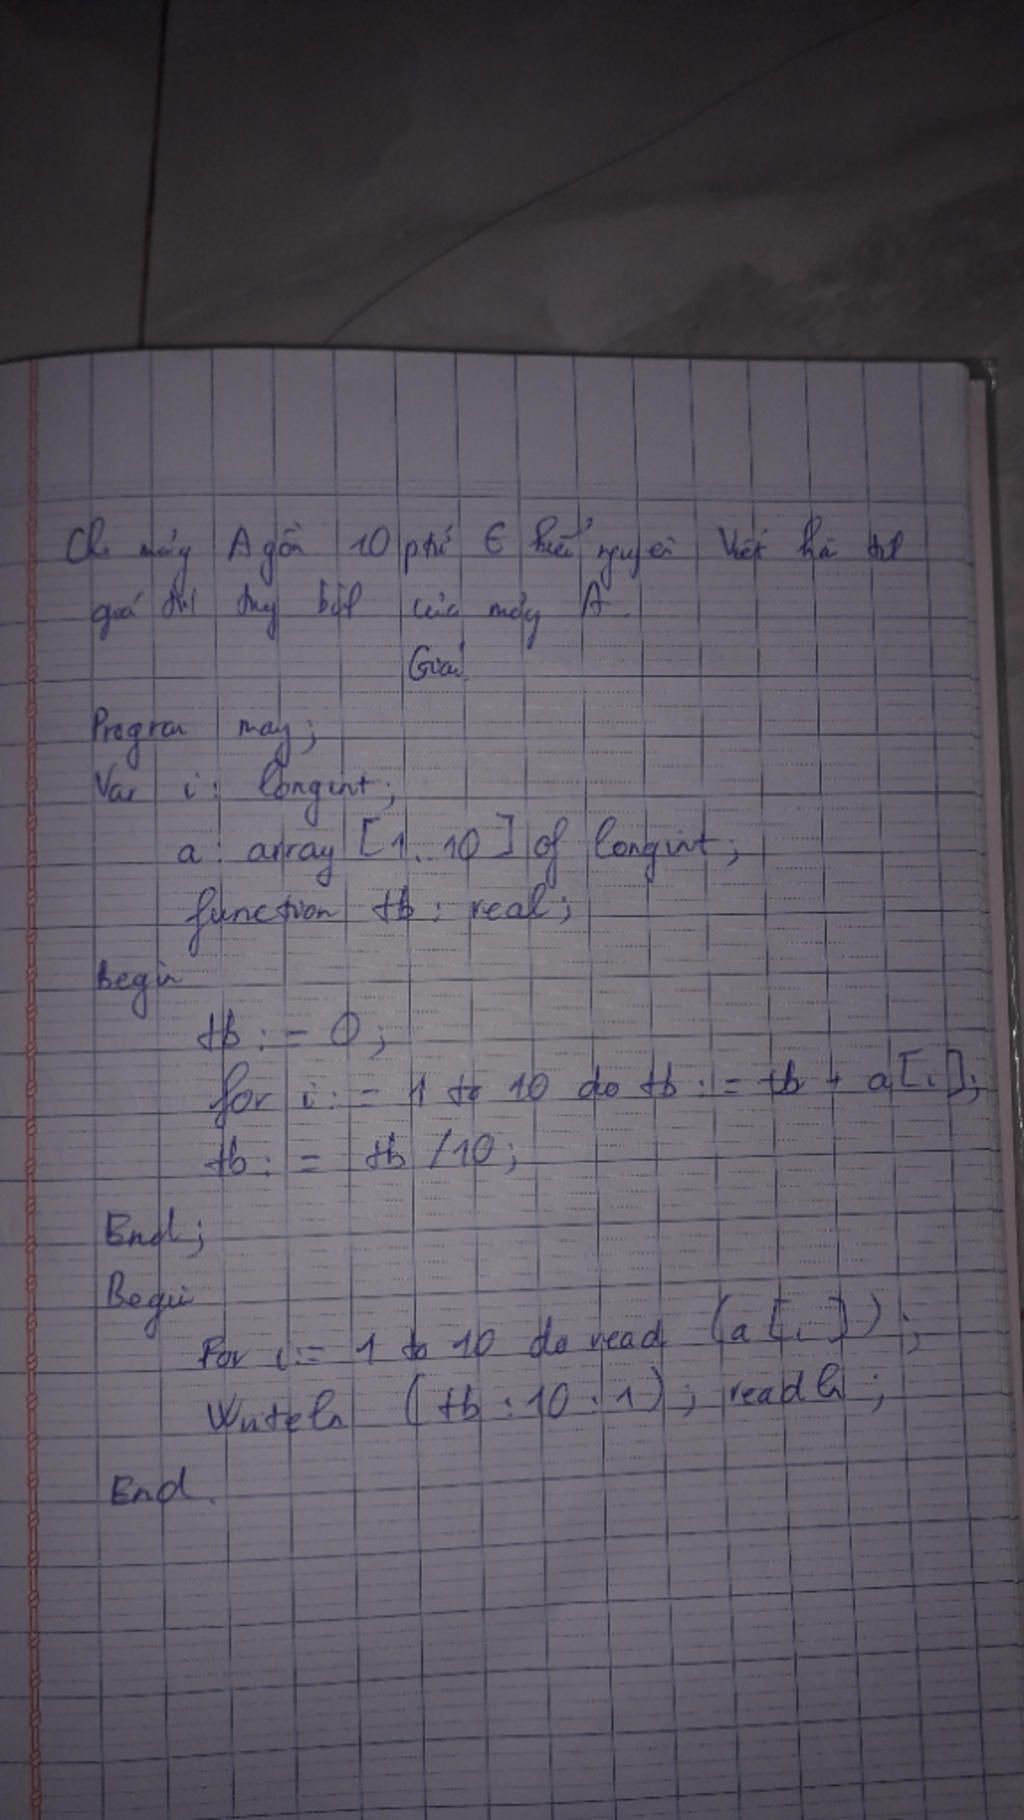 mảng A gồm 10 phần
của mảng A
Giải
Program mang;
Var i: longint;
a: array [1..10] of longint;
function tb: real;
Begin
tb := 0;
for i := 1 to 10 do tb := tb + a[i];
tb := tb /10;
End;
Begin
For i := 1 to 10 do read (a[i]);
Writeln (tb :10 :1); readln;
End.